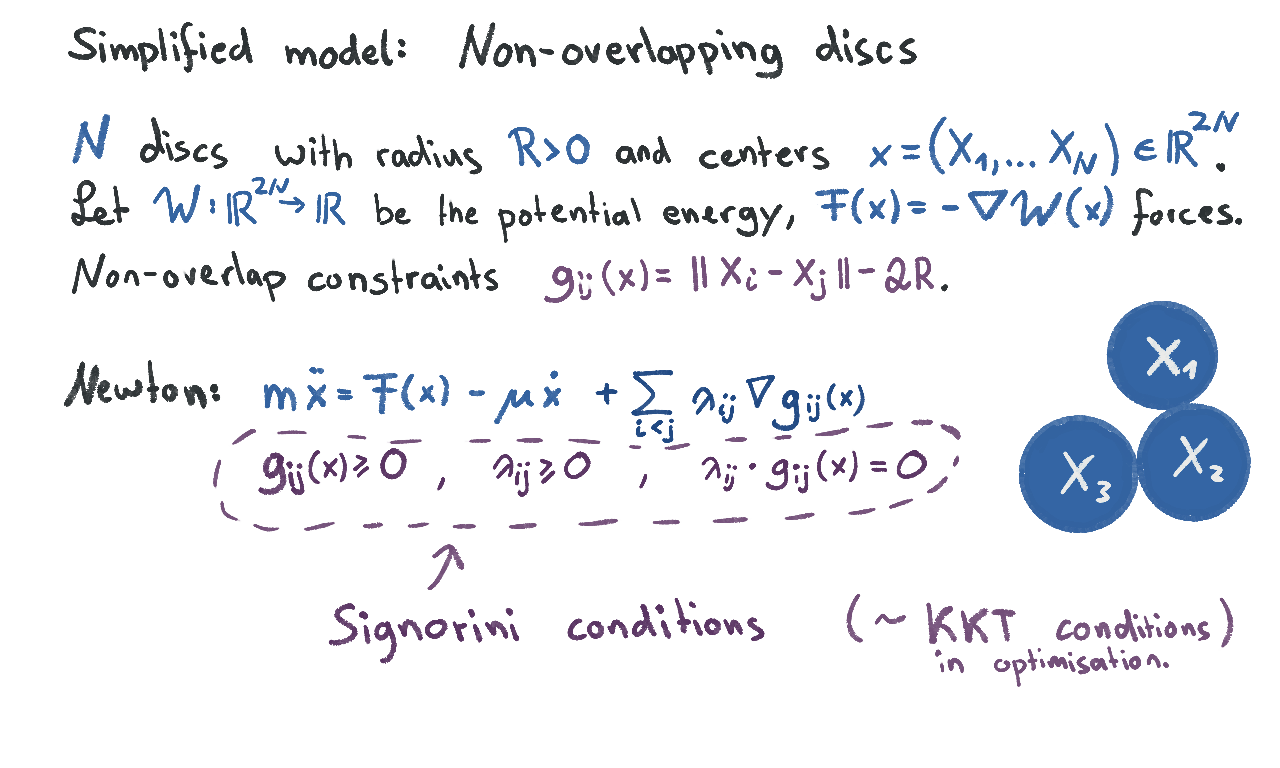 Simplified model: Non-overlapping discs
N discs with radius R>0 and centers x=(X₁,... X_N) ∈ ℝ²ᴺ.
Let W: ℝ²ᴺ→ ℝ be the potential energy, F(x)= -∇W(x) forces.
Non-overlap constraints g_ij(x)= ‖X_i - X_j‖ - 2R.
Newton: mẍ = F(x) - μẋ + ∑_{i<j} λ_ij ∇g_ij(x)
g_ij(x) ⩾ 0 , λ_ij ⩾ 0 , λ_ij · g_ij(x) = 0
X₁
X₃ X₂
Signorini conditions (~ KKT conditions)
in optimisation.